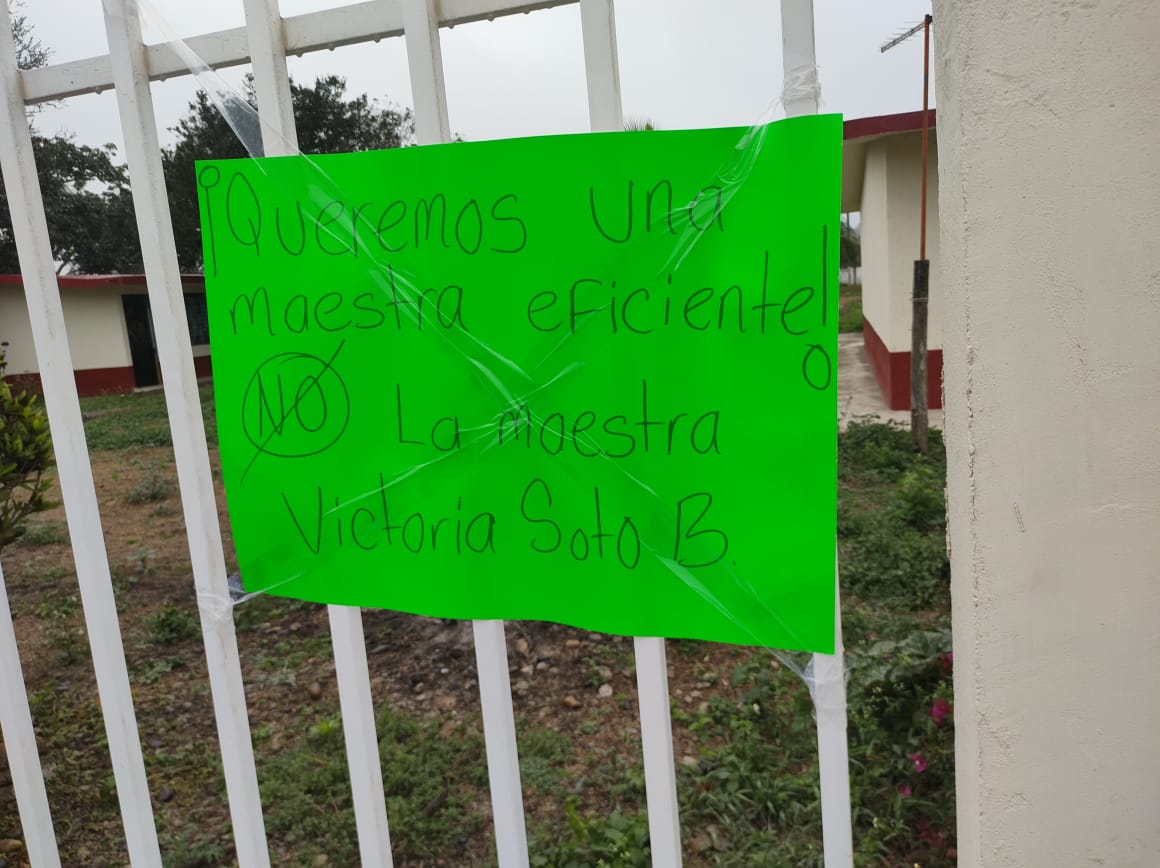 ¡Queremos una
maestra eficiente!
NO La maestra
Victoria Soto B.